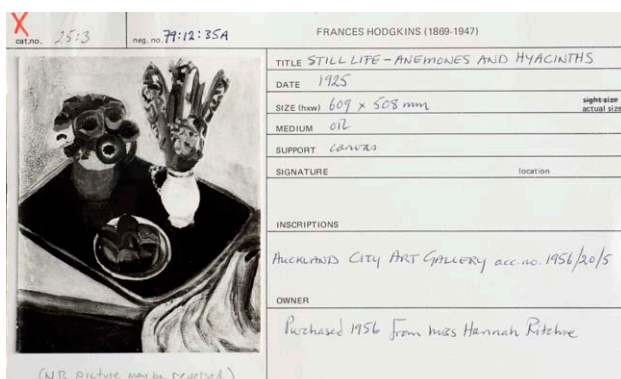 X
cat.no. 25:3
neg. no. 79:12:35A
FRANCES HODGKINS (1869-1947)
TITLE STILL LIFE - ANEMONES AND HYACINTHS
DATE 1925
SIZE (hxw) 609 x 508 mm
sight size
actual size
MEDIUM oil
SUPPORT canvas
SIGNATURE location
INSCRIPTIONS
AUCKLAND CITY ART GALLERY acc.no. 1956/20/5
OWNER
Purchased 1956 from Miss Hannah Ritchie
(NB picture may be reversed)